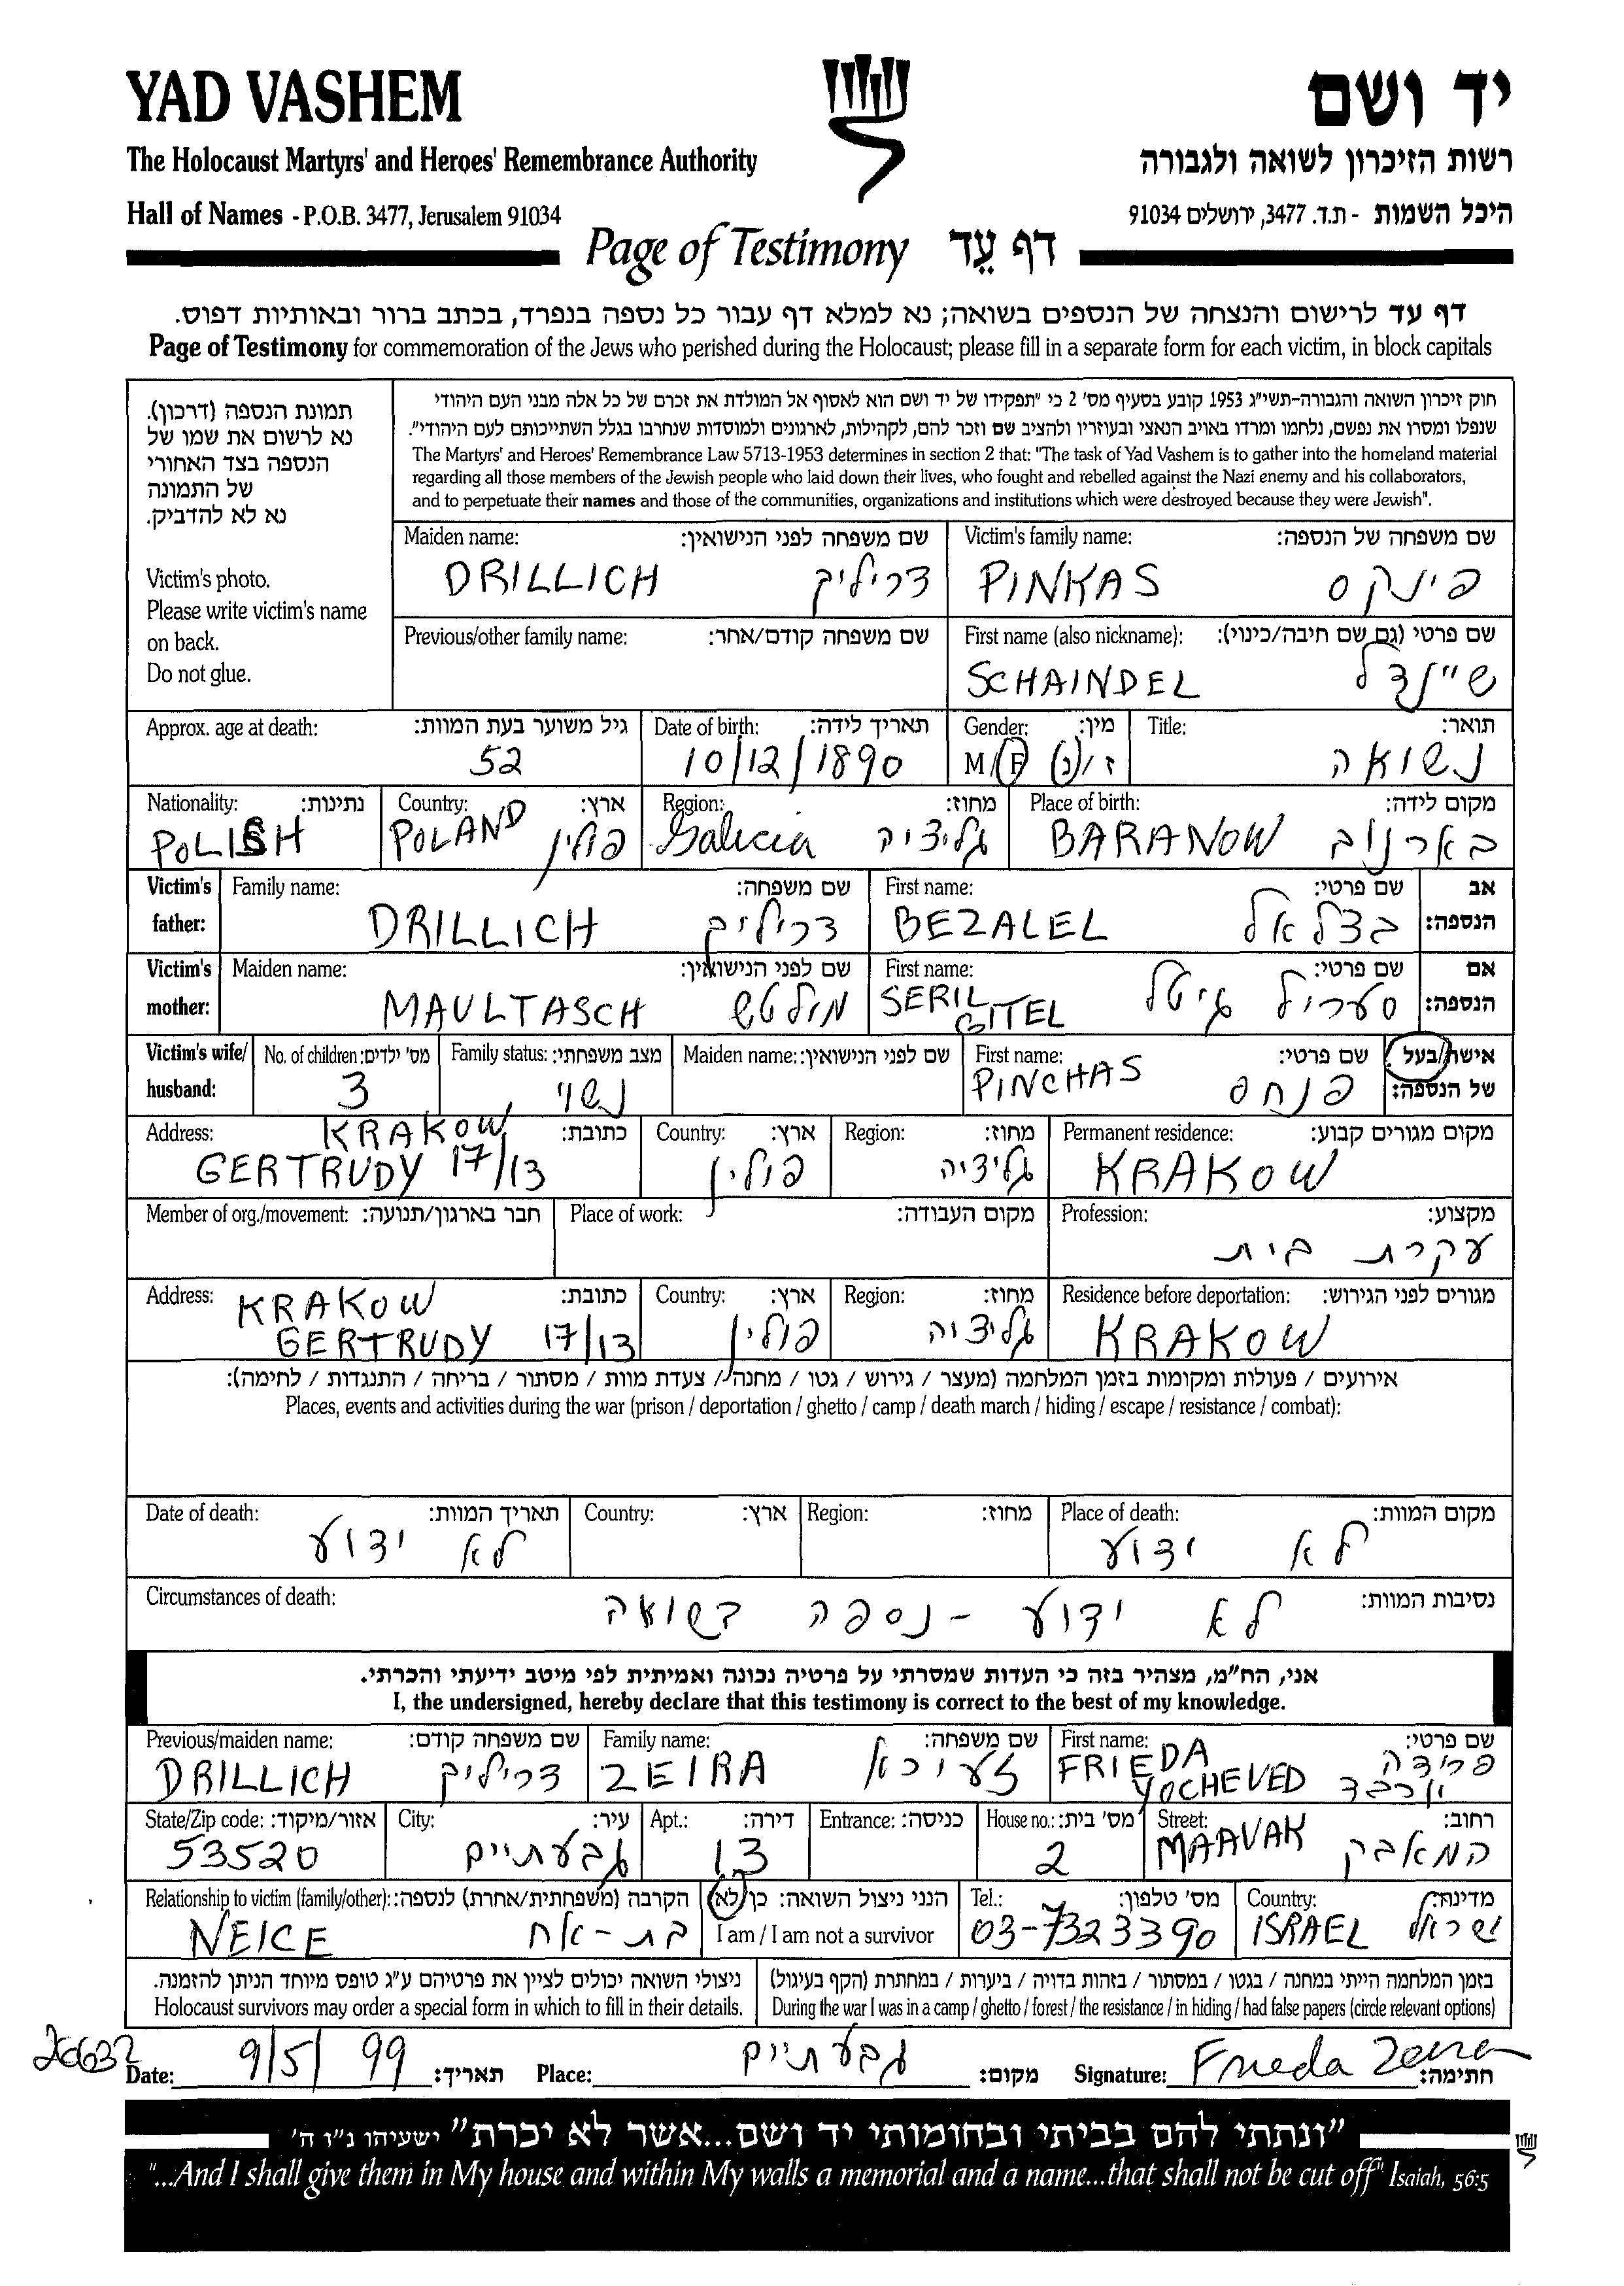 YAD VASHEM
יד ושם
The Holocaust Martyrs' and Heroes' Remembrance Authority
רשות הזיכרון לשואה ולגבורה
Hall of Names - P.O.B. 3477, Jerusalem 91034
היכל השמות - ת.ד. 3477, ירושלים 91034
Page of Testimony דף עֵד
דף עד לרישום והנצחה של הנספים בשואה; נא למלא דף עבור כל נספה בנפרד, בכתב ברור ובאותיות דפוס.
Page of Testimony for commemoration of the Jews who perished during the Holocaust; please fill in a separate form for each victim, in block capitals
תמונת הנספה (דרכון).
נא לרשום את שמו של
הנספה בצד האחורי
של התמונה
נא לא להדביק.
Victim's photo.
Please write victim's name
on back.
Do not glue.
חוק זיכרון השואה והגבורה-תשי"ג 1953 קובע בסעיף מס' 2 כי "תפקידו של יד ושם הוא לאסוף אל המולדת את זכרם של כל אלה מבני העם היהודי
שנפלו ומסרו את נפשם, נלחמו ומרדו באויב הנאצי ובעוזריו ולהציב שם וזכר להם, לקהילות, לארגונים ולמוסדות שנחרבו בגלל השתייכותם לעם היהודי".
The Martyrs' and Heroes' Remembrance Law 5713-1953 determines in section 2 that: "The task of Yad Vashem is to gather into the homeland material
regarding all those members of the Jewish people who laid down their lives, who fought and rebelled against the Nazi enemy and his collaborators,
and to perpetuate their names and those of the communities, organizations and institutions which were destroyed because they were Jewish".
Maiden name: שם משפחה לפני הנישואין:
DRILLICH דריליך
Victim's family name: שם משפחה של הנספה:
PINKAS פינקס
Previous/other family name: שם משפחה קודם/אחר:
First name (also nickname): שם פרטי (גם שם חיבה/כינוי):
SCHAINDEL שיינדל
Approx. age at death: גיל משוער בעת המוות:
52
Date of birth: תאריך לידה:
10/12/1890
Gender: מין:
M/F ז/נ
Title: תואר:
נשואה
Nationality: נתינות:
POLISH
Country: ארץ:
POLAND פולין
Region: מחוז:
Galicia גליציה
Place of birth: מקום לידה:
BARANOW בארנוב
Victim's father: אב הנספה:
Family name: שם משפחה:
DRILLICH דריליך
First name: שם פרטי:
BEZALEL בצלאל
Victim's mother: אם הנספה:
Maiden name: שם לפני הנישואין:
MAULTASCH מולטש
First name: שם פרטי:
SERIL GITEL סעריל גיטל
Victim's wife/husband: אישה/בעל של הנספה:
No. of children: מס' ילדים:
3
Family status: מצב משפחתי:
נשוי
Maiden name: שם לפני הנישואין:
First name: שם פרטי:
PINCHAS פנחס
Address: כתובת:
KRAKOW
GERTRUDY 17/13
Country: ארץ:
פולין
Region: מחוז:
גליציה
Permanent residence: מקום מגורים קבוע:
KRAKOW
Member of org./movement: חבר בארגון/תנועה:
Place of work: מקום העבודה:
Profession: מקצוע:
עקרת בית
Address: כתובת:
KRAKOW
GERTRUDY 17/13
Country: ארץ:
פולין
Region: מחוז:
גליציה
Residence before deportation: מגורים לפני הגירוש:
KRAKOW
אירועים / פעולות ומקומות בזמן המלחמה (מעצר / גירוש / גטו / מחנה / צעדת מוות / מסתור / בריחה / התנגדות / לחימה):
Places, events and activities during the war (prison / deportation / ghetto / camp / death march / hiding / escape / resistance / combat):
Date of death: תאריך המוות:
לא ידוע
Country: ארץ:
Region: מחוז:
Place of death: מקום המוות:
לא ידוע
Circumstances of death: נסיבות המוות:
לא ידוע - נספה בשואה
אני, הח"מ, מצהיר בזה כי העדות שמסרתי על פרטיה נכונה ואמיתית לפי מיטב ידיעתי והכרתי.
I, the undersigned, hereby declare that this testimony is correct to the best of my knowledge.
Previous/maiden name: שם משפחה קודם:
DRILLICH דריליך
Family name: שם משפחה:
ZEIRA זעירא
First name: שם פרטי:
FRIEDA פרידה
YOCHEVED יוכבד
State/Zip code: אזור/מיקוד:
53520
City: עיר:
גבעתיים
Apt.: דירה:
13
Entrance: כניסה:
House no.: מס' בית:
2
Street: רחוב:
MAAVAK המאבק
Relationship to victim (family/other): הקרבה (משפחתית/אחרת) לנספה:
NEICE בת-אח
הנני ניצול השואה: כן/לא
I am / I am not a survivor
Tel.: מס' טלפון:
03-7323390
Country: מדינה:
ISRAEL ישראל
ניצולי השואה יכולים לציין את פרטיהם ע"ג טופס מיוחד הניתן להזמנה.
Holocaust survivors may order a special form in which to fill in their details.
בזמן המלחמה הייתי במחנה / בגטו / במסתור / בזהות בדויה / ביערות / במחתרת (הקף בעיגול)
During the war I was in a camp / ghetto / forest / the resistance / in hiding / had false papers (circle relevant options)
Date: 9/5/99 תאריך:
Place: גבעתיים מקום:
Signature: Frieda Zeira חתימה:
"ונתתי להם בביתי ובחומותי יד ושם...אשר לא יכרת" ישעיהו נ"ו ה'
"...And I shall give them in My house and within My walls a memorial and a name...that shall not be cut off" Isaiah, 56:5